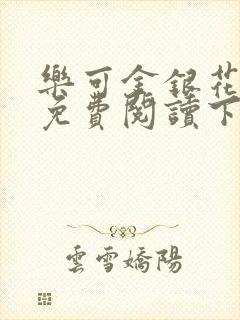 樂可金銀花
免費閱讀下
雲雪嬌陽